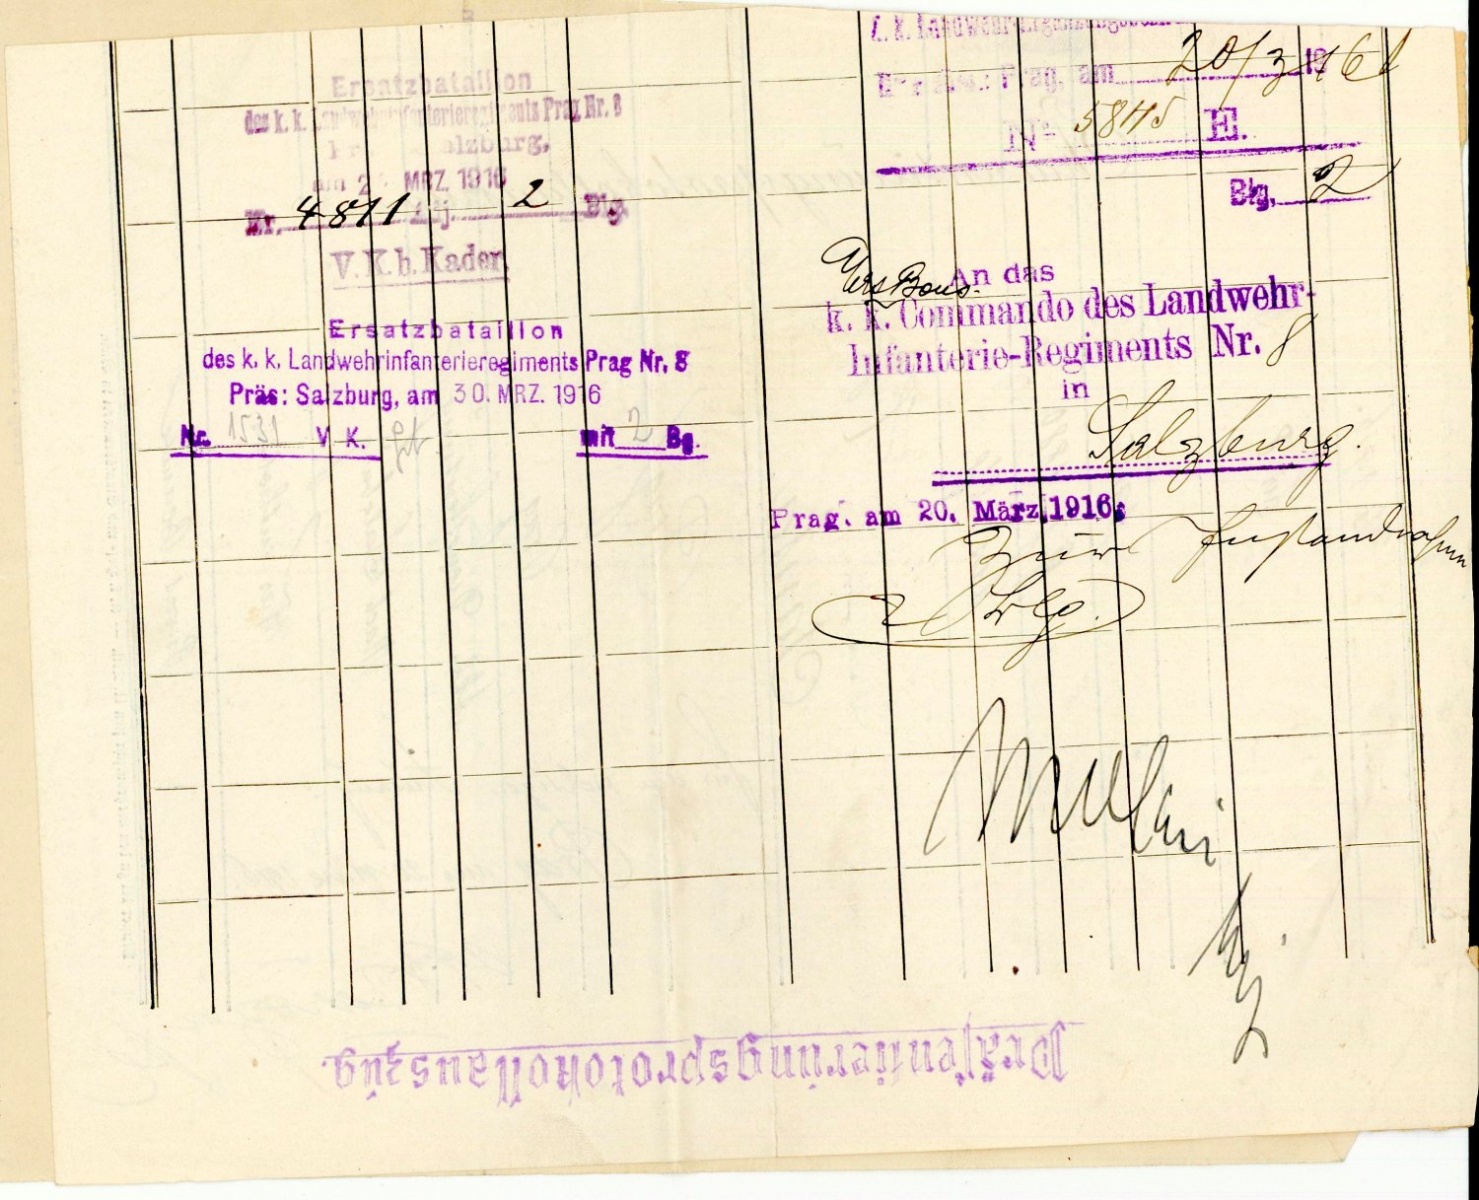 Ersatzbataillon
des k. k. Landwehrinfanterieregiments Prag Nr. 8
Salzburg,
am 2 MRZ. 1916
Nr. 4811 Adj. 2 Blg.
V. K. b. Kader.
Ersatzbataillon
des k. k. Landwehrinfanterieregiments Prag Nr. 8
Präs: Salzburg, am 30. MRZ. 1916
Nr. 1531 V. K. mit 2 Bg.
k. k. Landwehr-Ergänzungsbezirk
Prag, am 20/3 1916
No 5845 E.
Blg. 2
Ers Baon.
An das
k. k. Commando des Landwehr-
Infanterie-Regiments Nr. 8
in
Salzburg.
Prag. am 20. März 1916.
Zur
2 Blg.
Präsentierungsprotokollauszug.